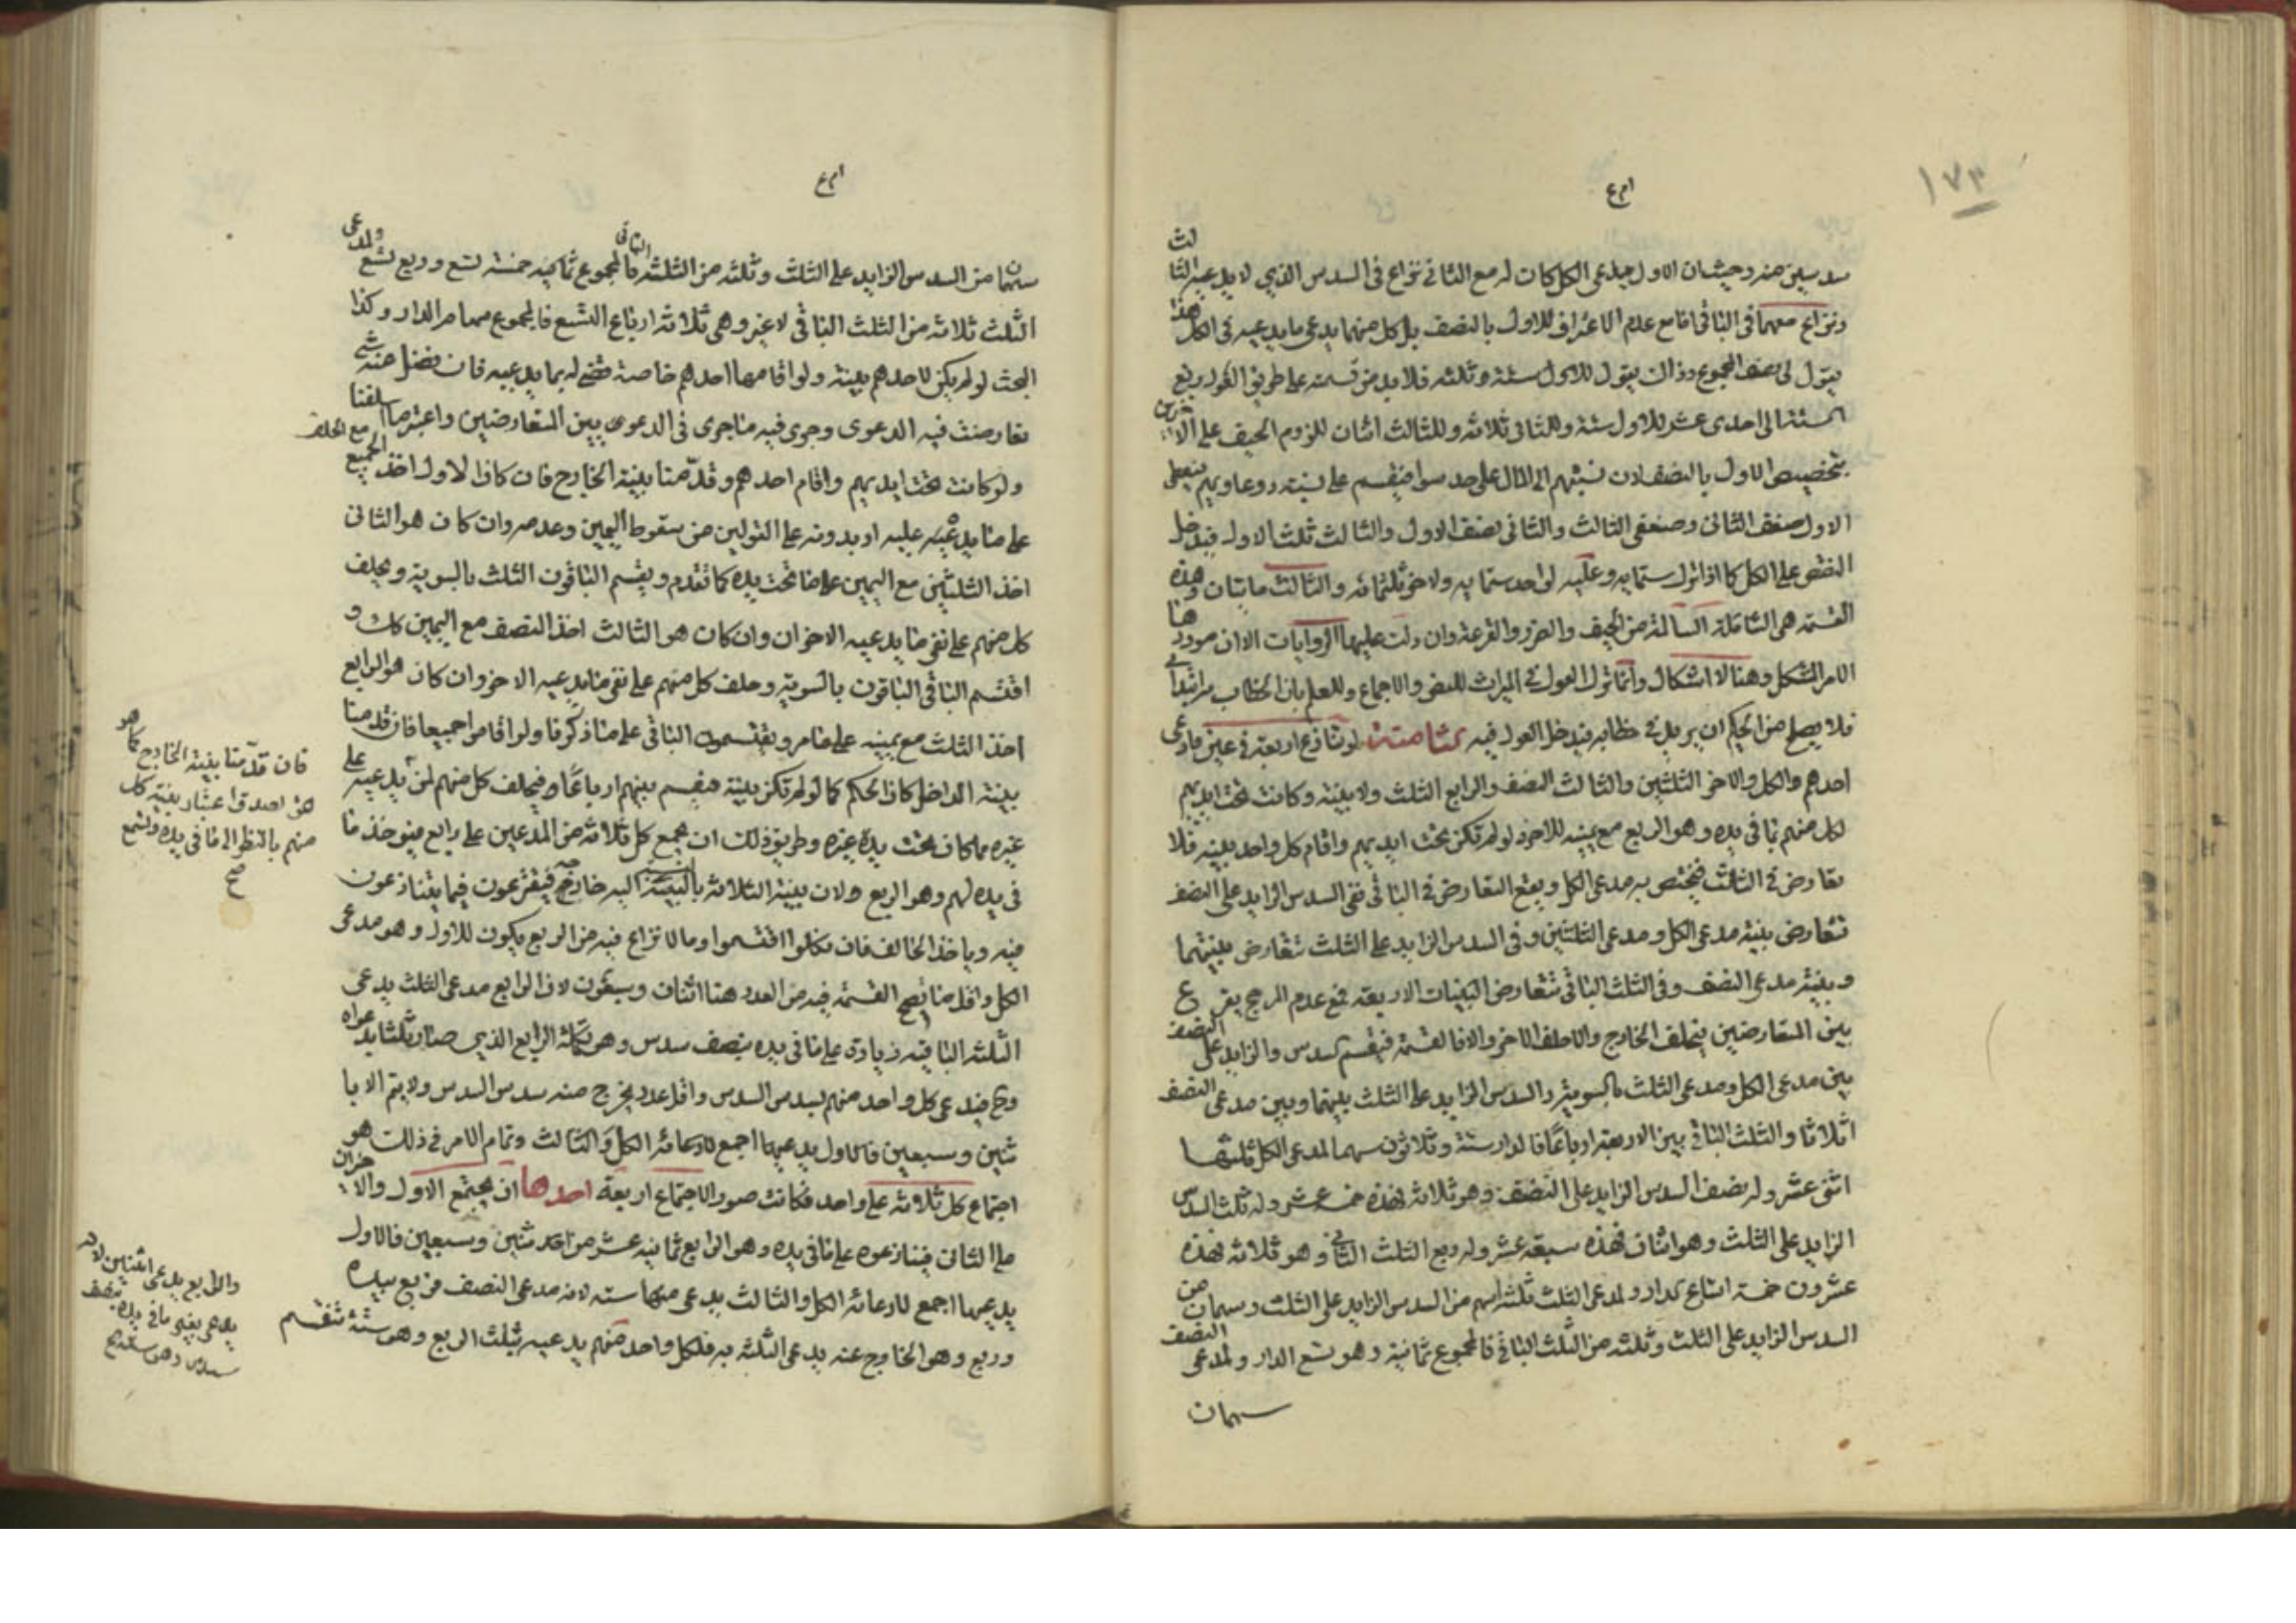 ١٧٣
سدسين منه وحيث ان الاول يدعى الكل كان له مع الثانى نزاع فى السدس الذي لا يدعيه الثالث
ونزاع معهما فى الباقى اما مع عدم الاعتراف للاول بالنصف بل كل منهما يدعى ما يدعيه فى الكل هذا
يقول لى نصف المجموع وذاك يقول للاول ستة وثلثه فلا بد من قسمته على طريق العول ورفع
الستة الى احدى عشر للاول ستة وللثانى ثلاثة وللثالث اثنان للزوم الحيف على الاخرين
بتخصيص الاول بالنصف لان نسبتهم الى المال على حد سوا فيقسم على نسبته دعاويهم فيعطى
الاول ضعف الثانى وضعفى الثالث والثانى نصف الاول والثالث ثلث الاول فيدخل
النقص على الكل كما اذا نزل ستمايه وعليه لواحد ستمايه ولاخر ثلثمائه والثالث مايتان وهذه
القسمة هى الشاملة السالمة من الحيف والضرر والقرعة وان دلت عليها الروايات الا ان موردها
الامر المشكل وهنا لا اشكال وانما ترك العول فى الميراث للنص والاجماع وللعلم بان الخطاب من ابتدا فى
فلا يصلح من الحكيم ان يريد فى خطابه فيدخل العول فيه ثامنه لو تنازع اربعة فى عين فادعى
احدهم الكل والاخر الثلثين والثالث النصف والرابع الثلث ولا بينة وكانت تحت ايديهم
لكل منهم ما فى يده وهو الربع مع يمينه للاخر ولو لم تكن تحت ايديهم واقام كل واحد بينه فلا
تعارض فى الثلث فيختص به مدعى الكل ويقع التعارض فى الباقى ففى السدس الزايد على النصف
تتعارض بينة مدعى الكل ومدعى الثلثين وفى السدس الزايد على الثلث تتعارض بينتهما
وبينة مدعى النصف وفى الثلث الباقى تتعارض البينات الاربعة فمع عدم المرجح يقرع
بين المتعارضين فيحلف الخارج والا حلف الاخر والا فالقسمة فيقسم السدس والزايد على النصف
بين مدعى الكل ومدعى الثلث بالسوية والسدس الزايد على الثلث بينهما وبين مدعى النصف
اثلاثا والثلث الباقى بين الاربعة ارباعا فالدار ستة وثلاثون سهما لمدعى الكل ثلثها
اثنى عشر وله نصف السدس الزايد على النصف وهو ثلاثة فهذه خمسة عشر وله ثلث السدس
الزايد على الثلث وهو اثنان فهذه سبعة عشر وله ربع الثلث الثانى وهو ثلاثة فهذه
عشرون خمسة اتساع الدار ولمدعى الثلث ثلثة اسهم من السدس الزايد على الثلث وسهمان من
السدس الزايد على الثلث وثلثه من الثلث الباقى فالمجموع ثمانية وهو تسع الدار ولمدعى النصف
سهمان
سهمان من السدس الزايد على الثلث وثلثه من الثلثه الباقى فالمجموع ثمانيه خمسة تسع وربع تسع ولمدعى
الثلث ثلاثة من الثلث الباقى لا غير وهى ثلاثة ارباع التسع فالمجموع سهام الدار وكذا
البحث لو لم يكن لاحدهم بينة ولو اقامها احدهم خاصة قضى له بما يدعيه فان فضل عنه شى
تعارضت فيه الدعوى وجرى فيه ما جرى فى الدعوى بين المتعارضين واعتبر ما اسلفنا مع الحلف
ولو كانت تحت ايديهم واقام احدهم وقدمنا بينة الخارج فان كان الاول اخذ الجميع
على ما يدعيه عليه او بدونه على القولين من سقوط اليمين وعدمه وان كان هو الثانى
اخذ الثلثين مع اليمين على ما تحت يده كما تقدم ويقسم الباقون الثلث بالسوية ويحلف
كل منهم على نفى ما يدعيه الاخران وان كان هو الثالث اخذ النصف مع اليمين كذلك و
اقتسم الباقى الباقون بالسوية وحلف كل منهم على نفى ما يدعيه الاخر وان كان هو الرابع
اخذ الثلث مع يمينه على ما مر ويقتسمون الباقى على ما ذكرنا ولو اقاموا جميعا فان قدمنا
بينة الداخل كان الحكم كما لو لم تكن بينة فيقسم بينهم ارباعًا فيحلف كل منهم لمن يدعيه على
غيره مما كان تحت يده غيره وطريق ذلك ان يجمع كل ثلاثة من المدعين على رابع فيؤخذ ما
فى يده لهم وهو الربع ولان بينة الثلاثة بالنسبة اليه خارجة فيقترعون فيما يتنازعون
فيه وياخذ الحالف فان نكلوا اقتسموا وما لا نزاع فيه من الربع يكون للاول وهو مدعى
الكل واقل ما يصح القسمة فيه من العدد هنا اثنان وسبعون لان الرابع مدعى الثلث يدعى
الثلثه الباقيه زيادة على ما فى يده بنصف سدس وهو تكملة الرابع الذي صار ثلثا يدعواه
وح فيدعى كل واحد منهم بسدس السدس واقل عدد يخرج منه سدس السدس ولا يتم الا با
ثنين وسبعين فالاول يدعيها اجمع لادعائه الكل والثالث وتمام الامر فى ذلك هو
اجتماع كل ثلاثة على واحد فكانت صور الاجتماع اربعة احدها ان يجتمع الاول والاخران
على الثانى فينازعوه على ما فى يده وهو الرابع ثمانيه عشر من احد ثنين وسبعين فالاول
يدعيها اجمع لادعائه الكل والثالث يدعى منها سته لانه مدعى النصف فربع بيده
وربع وهو الخارج عنه يدعى الثلثه به فلكل واحد منهم يدعيه ثلث الربع وهو ستة تنقسم
فان قدمنا بينة الخارج كما هو
هو احد قوا عتبار بينة كل
منهم بالنظر الى ما فى يده وتسمع
صح
والرابع يدعى اثنين لانه
يدعى بقى ما فى يده نصف
سدس وهو ستة